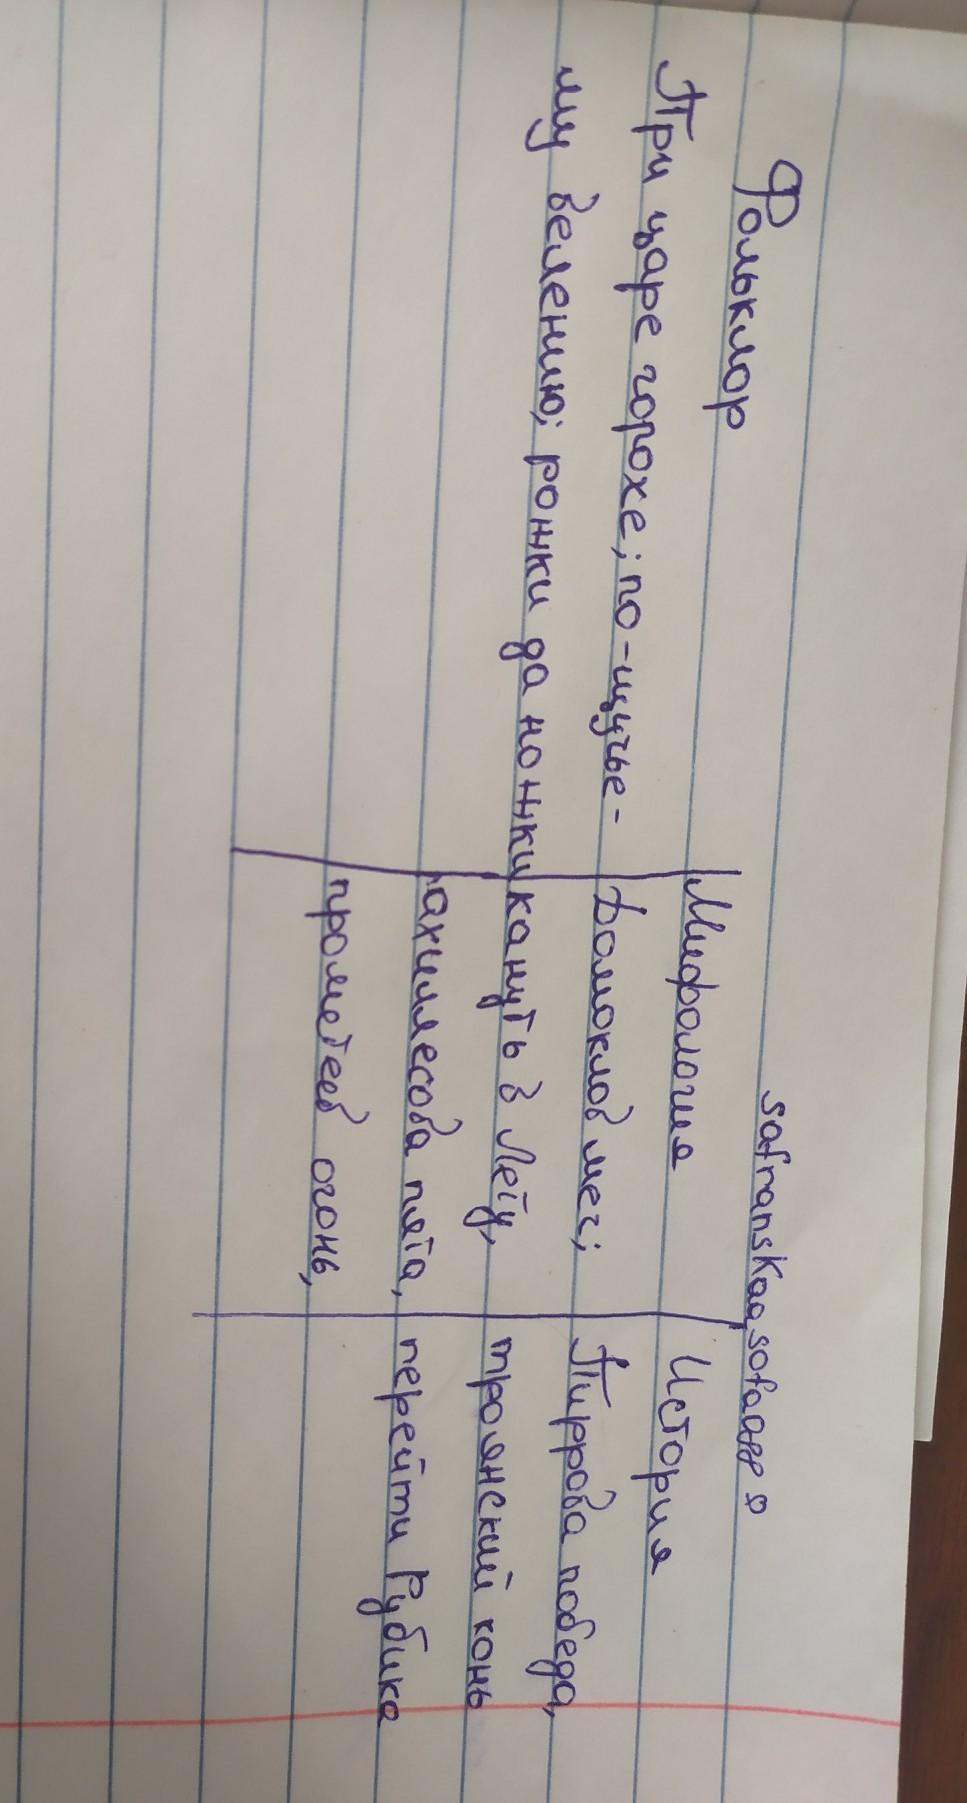 safranskaasofaapp
Фольклор
При царе горохе; по-щучье-
му велению; рожки да ножки
Мифология
Домоклов меч;
кануть в Лету,
ахиллесова пята,
прометеев огонь,
История
Пиррова победа,
троянский конь
перейти Рубике